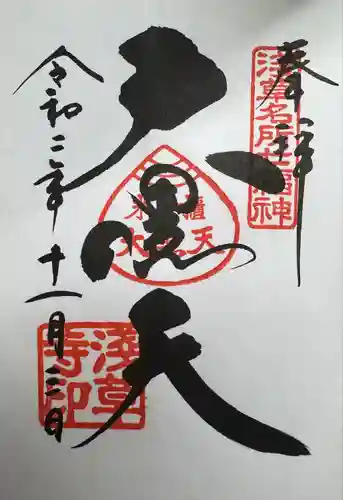 奉拝
淺草名所七福神
大黒天
米櫃
令和二年十一月三日
淺草寺印